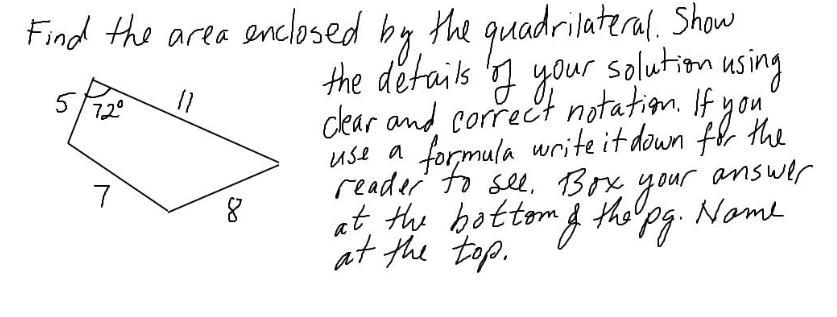 Find the area enclosed by the quadrilateral. Show
the details of your solution using
clear and correct notation. If you
use a formula write it down for the
reader to see. Box your answer
at the bottom of the pg. Name
at the top.
5
72°
11
7
8